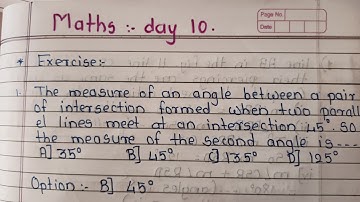 Maths :- day 10.
Page No.
Date
* Exercise:-
1. The measure of an angle between a pair
of intersection formed when two parall
el lines meet at an intersection 45°. so
the measure of the second angle is ---
A] 35° B] 45° C] 135° D] 125°
Option :- B] 45°